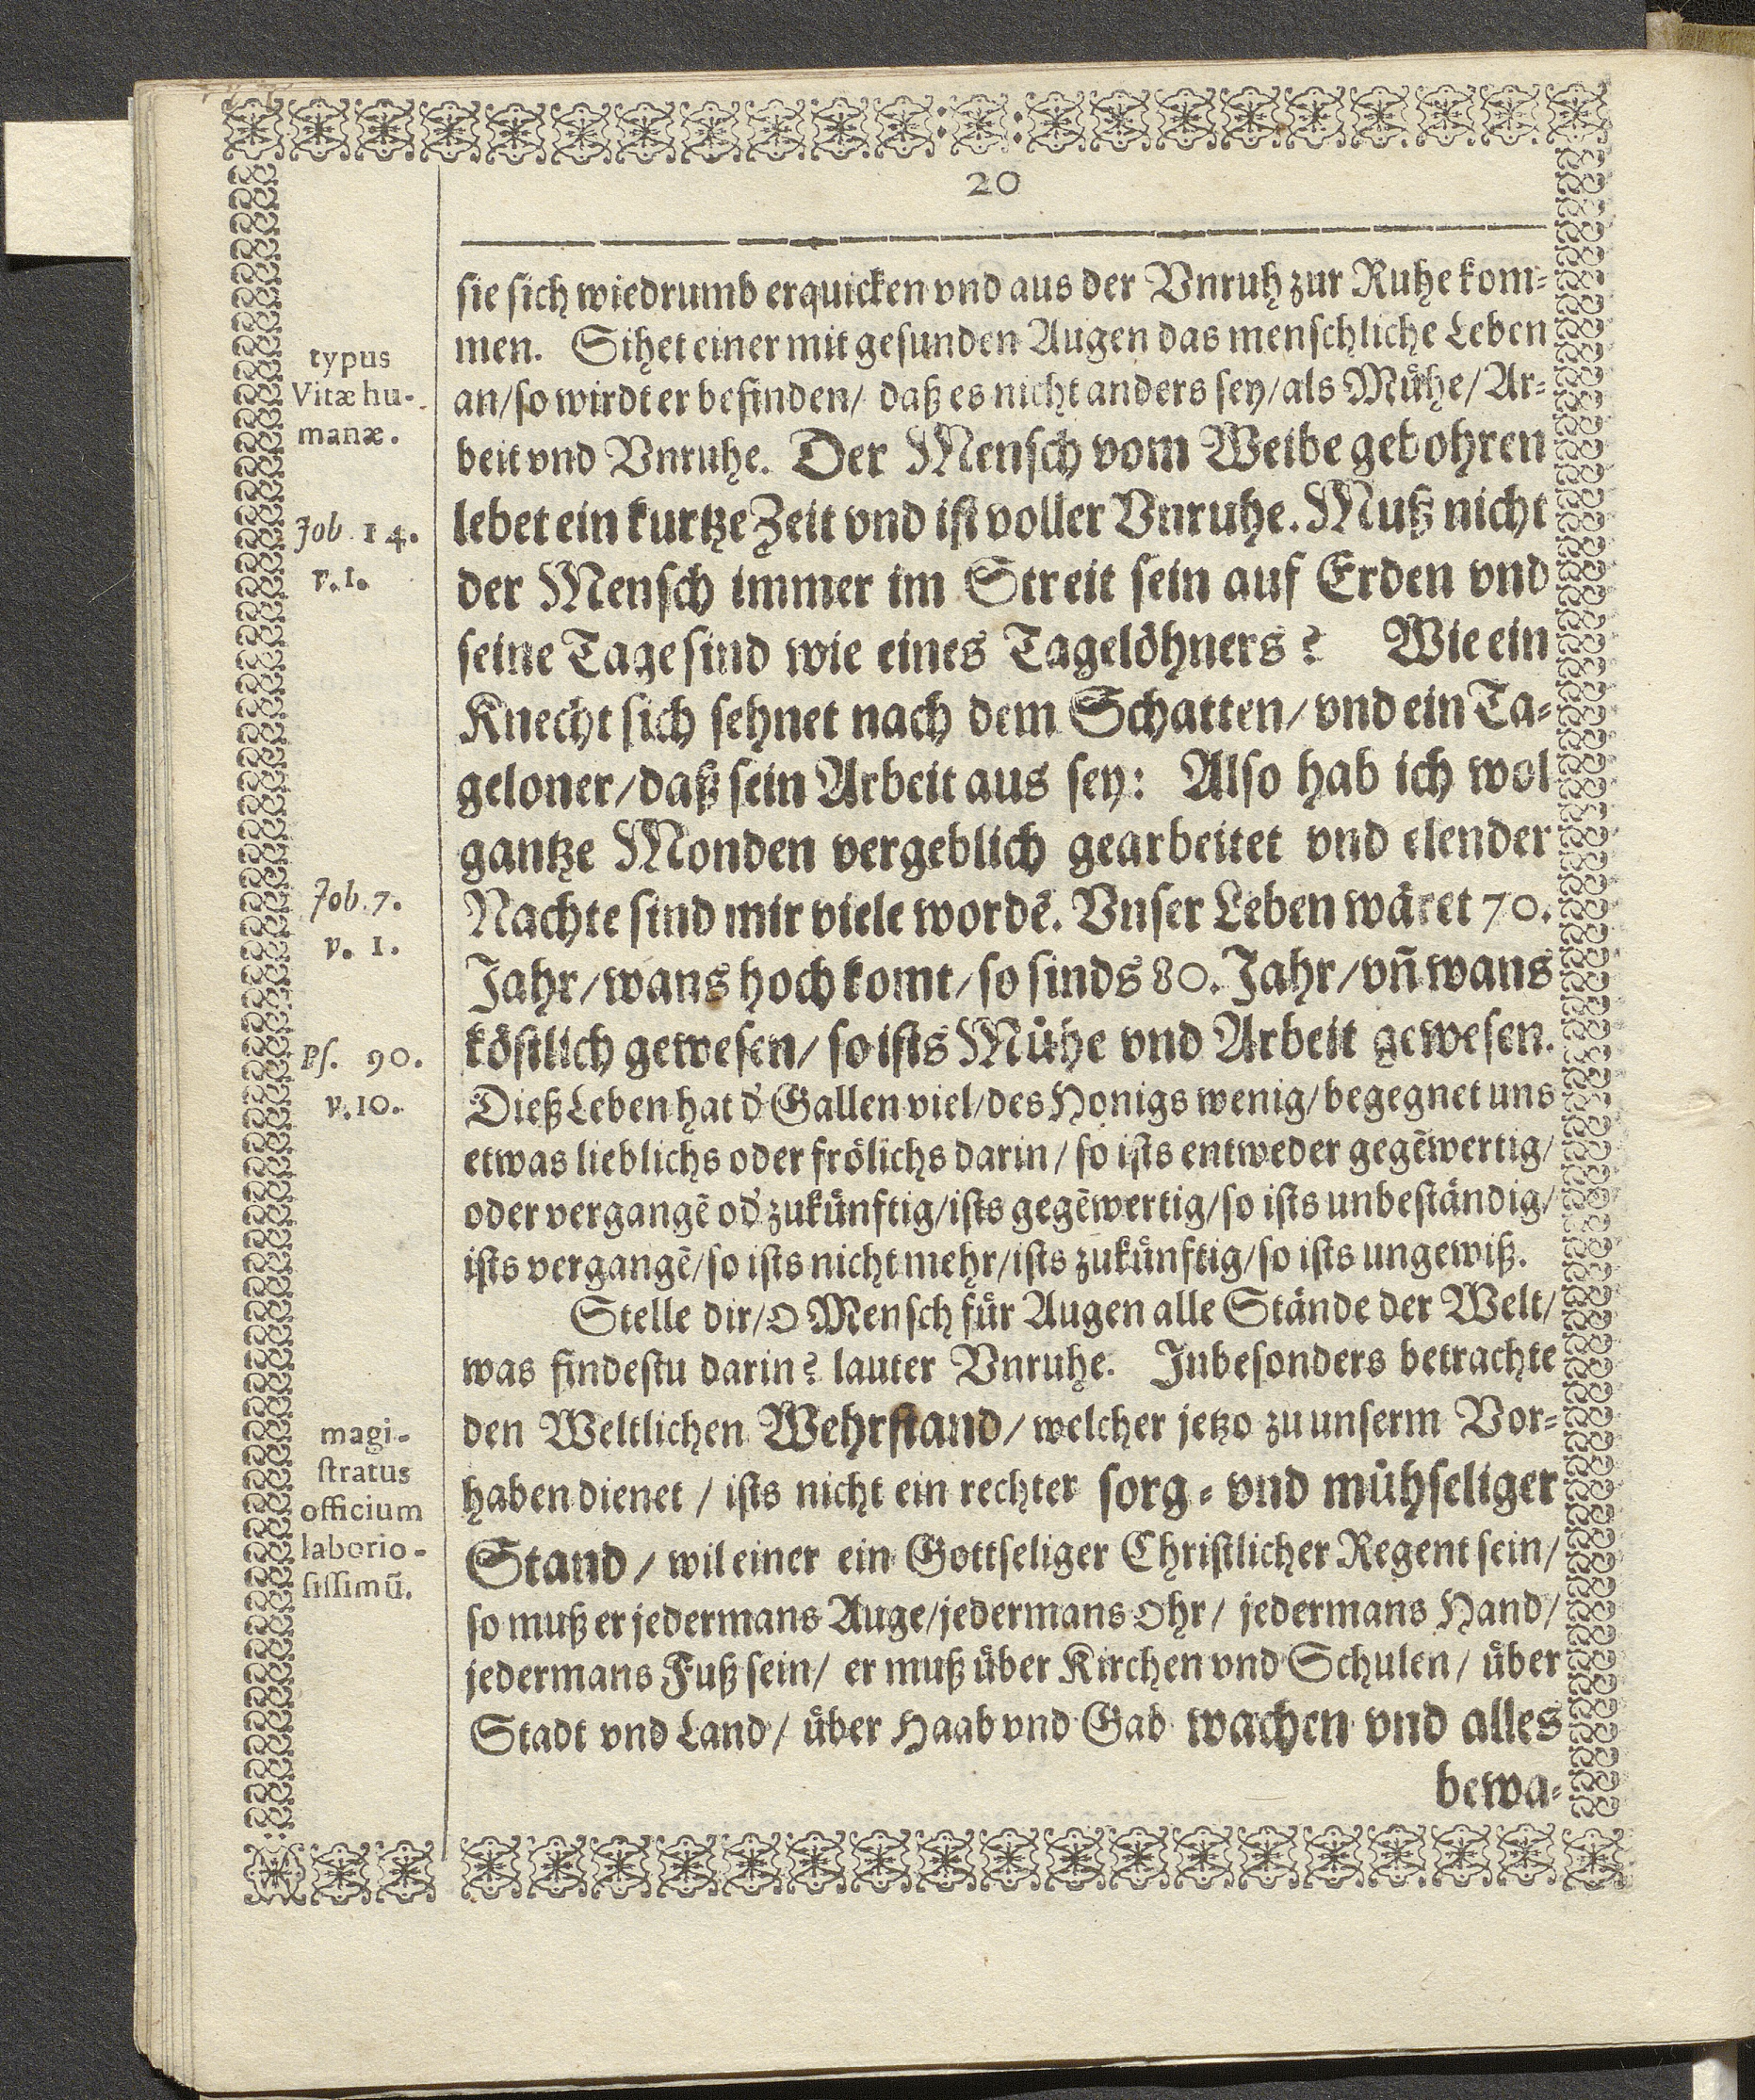 20
sie sich wiedrumb erquicken vnd aus der Vnruh zur Ruhe kom-
men. Sihet einer mit gesunden Augen das menschliche Leben
an/so wirdt er befinden/ daß es nicht anders sey/als Mühe/ Ar-
beit vnd Vnruhe. Der Mensch vom Weibe gebohren
lebet ein kurtze Zeit vnd ist voller Vnruhe. Muß nicht
der Mensch immer im Streit sein auf Erden vnd
seine Tage sind wie eines Tagelöhners? Wie ein
Knecht sich sehnet nach dem Schatten/ vnd ein Ta-
geloner/daß sein Arbeit aus sey: Also hab ich wol
gantze Monden vergeblich gearbeitet vnd elender
Nachte sind mir viele wordē. Vnser Leben wäret 70.
Jahr/wans hoch komt/ so sinds 80. Jahr/vn̄ wans
köstlich gewesen/ so ists Mühe vnd Arbeit gewesen.
Dieß Leben hat d' Gallen viel/des Honigs wenig/begegnet uns
etwas lieblichs oder frölichs darin/ so ists entweder gegēwertig/
oder vergangē od' zukünftig/ists gegēwertig/so ists unbeständig/
ists vergangē/so ists nicht mehr/ists zukünftig/so ists ungewiß.
Stelle dir/O Mensch für Augen alle Stände der Welt/
was findestu darin? lauter Vnruhe. Inbesonders betrachte
den Weltlichen Wehrstand/ welcher jetzo zu unserm Vor-
haben dienet / ists nicht ein rechter sorg- vnd mühseliger
Stand/ wil einer ein Gottseliger Christlicher Regent sein/
so muß er jedermans Auge/jedermans Ohr/ jedermans Hand/
jedermans Fuß sein/ er muß über Kirchen vnd Schulen/ über
Stadt vnd Land/ über Haab vnd Gab wachen vnd alles
bewa-
typus
Vitæ hu-
manæ.
Job 14.
v. 1.
Job. 7.
v. 1.
Ps. 90.
v. 10.
magi-
stratus
officium
laborio-
sissimū.